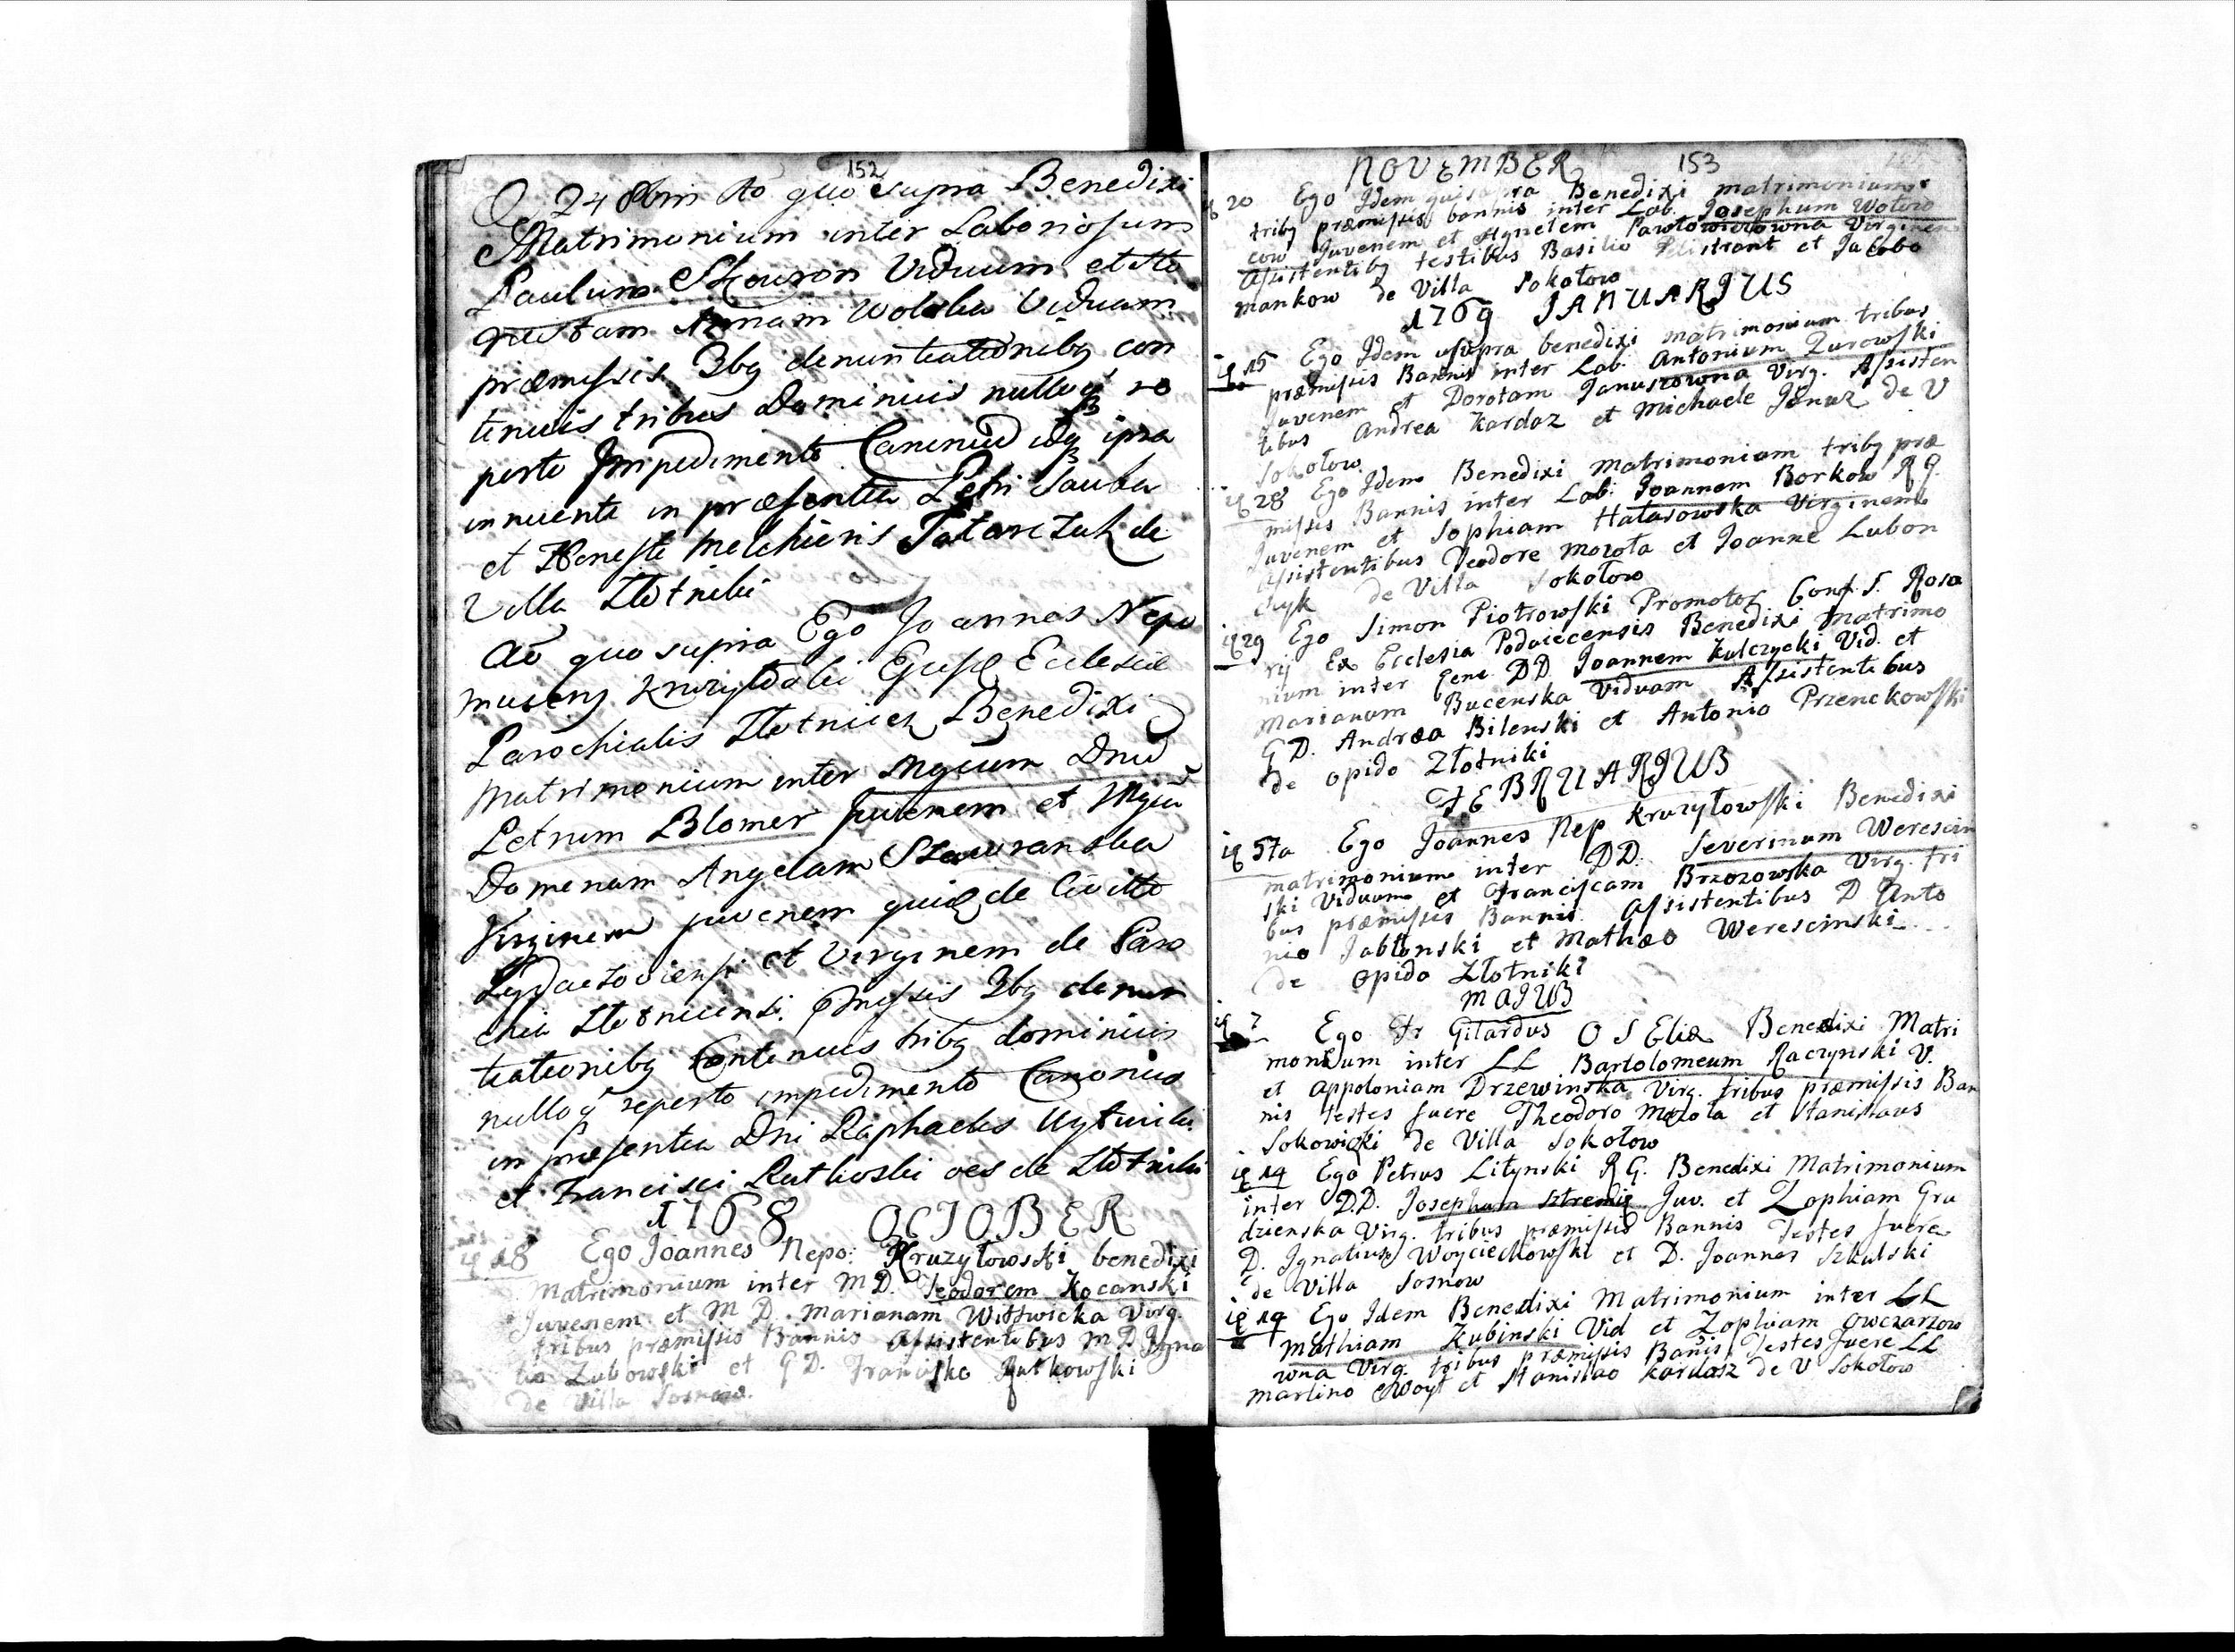 152
24 Xbris Ao quo supra Benedixi
Matrimonium inter Laboriosum
Paulum Skowron Viduum et Ho
nestam Annam Wolska Viduam
præmissis 3bg denuntiationibg con
tinuis tribus Dominicis nulloq re
perto Impedimento Canonico
in præsentia Petri Sawka
et Honesti Melchioris Tatarczuk de
Villa Złotniki
Ao quo supra Ego Joannes Nepo
muceng Kruzyłoski Ejusd Ecclesiæ
Parochialis Złotnicen Benedixi
Matrimonium inter Mgcum Dnum
Petrum Blomer Juvenem et Mgcam
Domenam Angelam Szawranska
Virginem juvenem quid de Civitte
et Virginem de Paro
chia Złotnicensi pmissis 3bg denun
tiationibg Continuis tribg dominicis
nulloq reperto impedimento Canonico
in præsentia Dni Raphaelis
et Francisci Rutkoski oes de Złotniki
1768 OCTOBER
18 Ego Joannes Nepo: Kruzyłowski benedixi
Matrimonium inter M D. Teodorem Kocanski
Juvenem et M D. Marianam Wittwicka Virg.
tribus præmissis Bannis Assistentibus M D Igna
tio Zubowski et G D. Francisko Rutkowski
de Villa Sosnow.
NOVEMBER 153
20 Ego Idem qui supra Benedixi matrimonium
tribg præmissis bannis inter Lab. Josephum Wotero
cow Juvenem et Agnetem Pawłowiczowna Virginem
Assistentibg testibus Basilio et Jacobo
mankow de Villa Sokołow
1769 JANUARIUS
15 Ego Idem ut supra benedixi matrimonium tribus
præmissis Bannis inter Lab. Antonium Zurowski
Juvenem et Dorotam Januszowna Virg. Assisten
tibus Andrea Kardaz et Michaele Janaz de V
Sokołow
28 Ego Idem Benedixi Matrimonium tribg præ
missis Bannis inter Lab. Joannem Borkow R G.
Juvenem et Sophiam Hatarowska Virginem
Assistentibus Teodore Mozota et Joanne Lubon
czyk de Villa Sokołow
29 Ego Simon Piotrowski Promotor Conf. S. Rosa
rij Ex Ecclesia Podaiecensis Benedixi Matrimo
nium inter Gene DD Joannem Kulczycki Vid. et
Marianam Bucenska Viduam Assistentibus
G D. Andræa Bilenski et Antonio Przenckowski
de opido Złotniki
FEBRUARIUS
5ta Ego Joannes Nep Kruzyłowski Benedixi
matrimonium inter DD. Severinum Werescin
ski Viduum et Franciscam Brzozowska Virg. tri
bus præmissis Bannis. Assistentibus D Anto
nio Jabłonski et Mathæo Werescinski
de opido Złotniki
MAIUS
7 Ego Fr Gilardus O S Eliæ Benedixi Matri
monium inter LL Bartolomeum Raczynski V.
et Appoloniam Drzewinska Virg. tribus præmissis Ban
nis testes fuere Theodoro Mozota et Stanislaus
Sokowicki de Villa Sokołow
14 Ego Petrus Litynski R G. Benedixi Matrimonium
inter D.D. Josephum Sztremię Juv. et Zophiam Gru
dzienska Virg. tribus præmissis Bannis Testes fuere
D. Ignatius Woyciechowski et D. Joannes Szkulski
de Villa Sosnow
14 Ego Idem Benedixi Matrimonium inter LL
Mathiam Kubinski Vid et Zophiam Owczarzow
wna Virg. tribus præmissis Banis Testes fuere LL
Martino Woyt et Stanislao Kardasz de V Sokołow